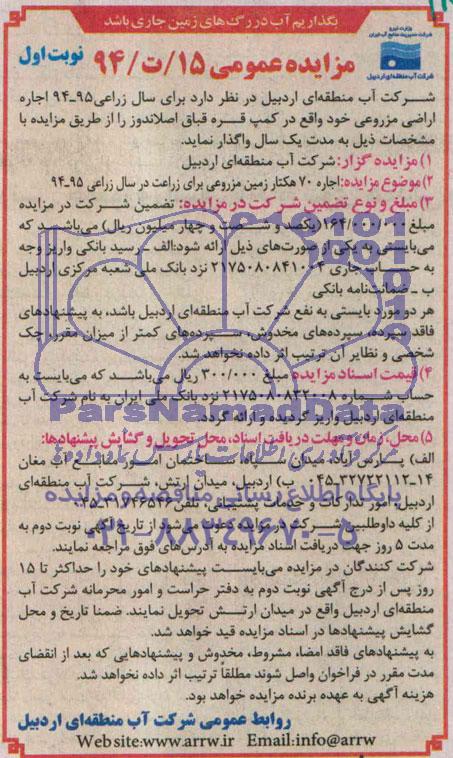 بگذاریم آب در رگ‌های زمین جاری باشد
وزارت نیرو
شرکت مدیریت منابع آب ایران
شرکت آب منطقه‌ای اردبیل
مزایده عمومی ۱۵/ت/۹۴
نوبت اول
شرکت آب منطقه‌ای اردبیل در نظر دارد برای سال زراعی ۹۵ـ۹۴ اجاره
اراضی مزروعی خود واقع در کمپ قره قباق اصلاندوز را از طریق مزایده با
مشخصات ذیل به مدت یک سال واگذار نماید.
۱) مزایده گزار: شرکت آب منطقه‌ای اردبیل
۲) موضوع مزایده: اجاره ۷۰ هکتار زمین مزروعی برای زراعت در سال زراعی ۹۵ـ۹۴
۳) مبلغ و نوع تضمین شرکت در مزایده: تضمین شرکت در مزایده
مبلغ ۱۶۴/۰۰۰/۰۰۰ (یکصد و شصت و چهار میلیون ریال) می‌باشد که
می‌بایستی به یکی از صورت‌های ذیل ارائه شود: الف ـ رسید بانکی واریز وجه
به حساب جاری ۲۱۷۵۰۸۰۸۴۱۰۰۳ نزد بانک ملی شعبه مرکزی اردبیل
ب ـ ضمانت‌نامه بانکی
هر دو مورد بایستی به نفع شرکت آب منطقه‌ای اردبیل باشد، به پیشنهادهای
فاقد سپرده، سپرده‌های مخدوش، سپرده‌های کمتر از میزان مقرر، چک
شخصی و نظایر آن ترتیب اثر داده نخواهد شد.
۴) قیمت اسناد مزایده مبلغ ۳۰۰/۰۰۰ ریال می‌باشد که می‌بایست به
حساب شماره ۲۱۷۵۰۸۰۸۳۲۰۰۸ نزد بانک ملی ایران به نام شرکت آب
منطقه‌ای اردبیل واریز گردیده و ارائه گردد.
۵) محل، زمان و مهلت دریافت اسناد، محل تحویل و گشایش پیشنهادها:
الف) پارس آباد، میدان سپاه، ساختمان امور منابع آب مغان
۱۴ـ۳۲۷۲۳۱۱۲ـ۰۴۵ ب) اردبیل، میدان ارتش، شرکت آب منطقه‌ای
اردبیل، امور تدارکات و خدمات پشتیبانی، تلفن ۳۱۷۴۶۵۴۶ـ۰۴۵
از کلیه داوطلبین شرکت در مزایده دعوت می‌شود از تاریخ آگهی نوبت دوم به
مدت ۵ روز جهت دریافت اسناد مزایده به آدرس‌های فوق مراجعه نمایند.
شرکت کنندگان در مزایده می‌بایست پیشنهادهای خود را حداکثر تا ۱۵
روز پس از درج آگهی نوبت دوم به دفتر حراست و امور محرمانه شرکت آب
منطقه‌ای اردبیل واقع در میدان ارتش تحویل نمایند. ضمنا تاریخ و محل
گشایش پیشنهادها در اسناد مزایده قید خواهد شد.
به پیشنهادهای فاقد امضا، مشروط، مخدوش و پیشنهادهایی که بعد از انقضای
مدت مقرر در فراخوان واصل شوند مطلقاً ترتیب اثر داده نخواهد شد.
هزینه آگهی به عهده برنده مزایده خواهد بود.
روابط عمومی شرکت آب منطقه‌ای اردبیل
Web site:www.arrw.ir Email:info@arrw
ParsNamadData
پایگاه اطلاع رسانی مناقصه و مزایده
۰۲۱-۸۸۳۴۹۶۷۰-۵